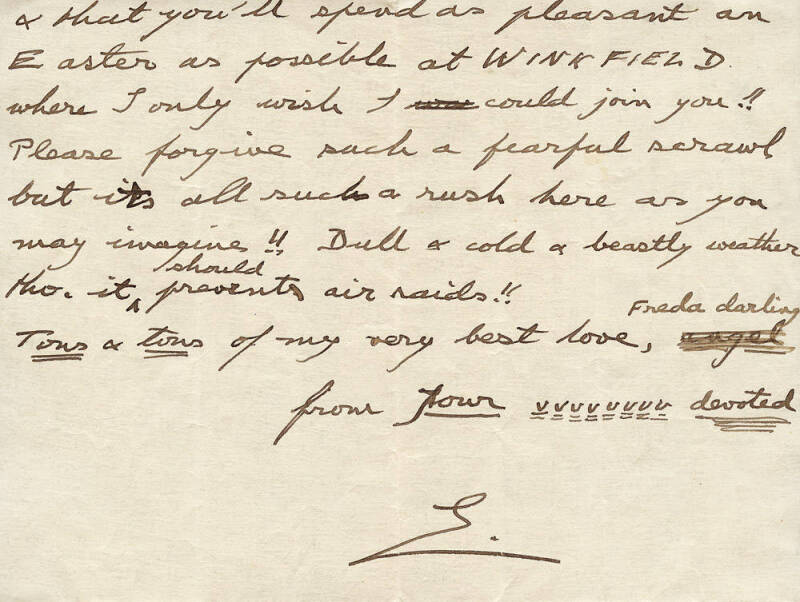 & that you'll spend as pleasant an
Easter as possible at WINKFIELD.
where I only wish I could join you!!
Please forgive such a fearful scrawl
but its all such a rush here as you
may imagine!! Dull & cold & beastly weather
tho. it should prevents air raids!!
Freda darling
Tons & tons of my very best love, angel
from your vvvvvvvv devoted
E.